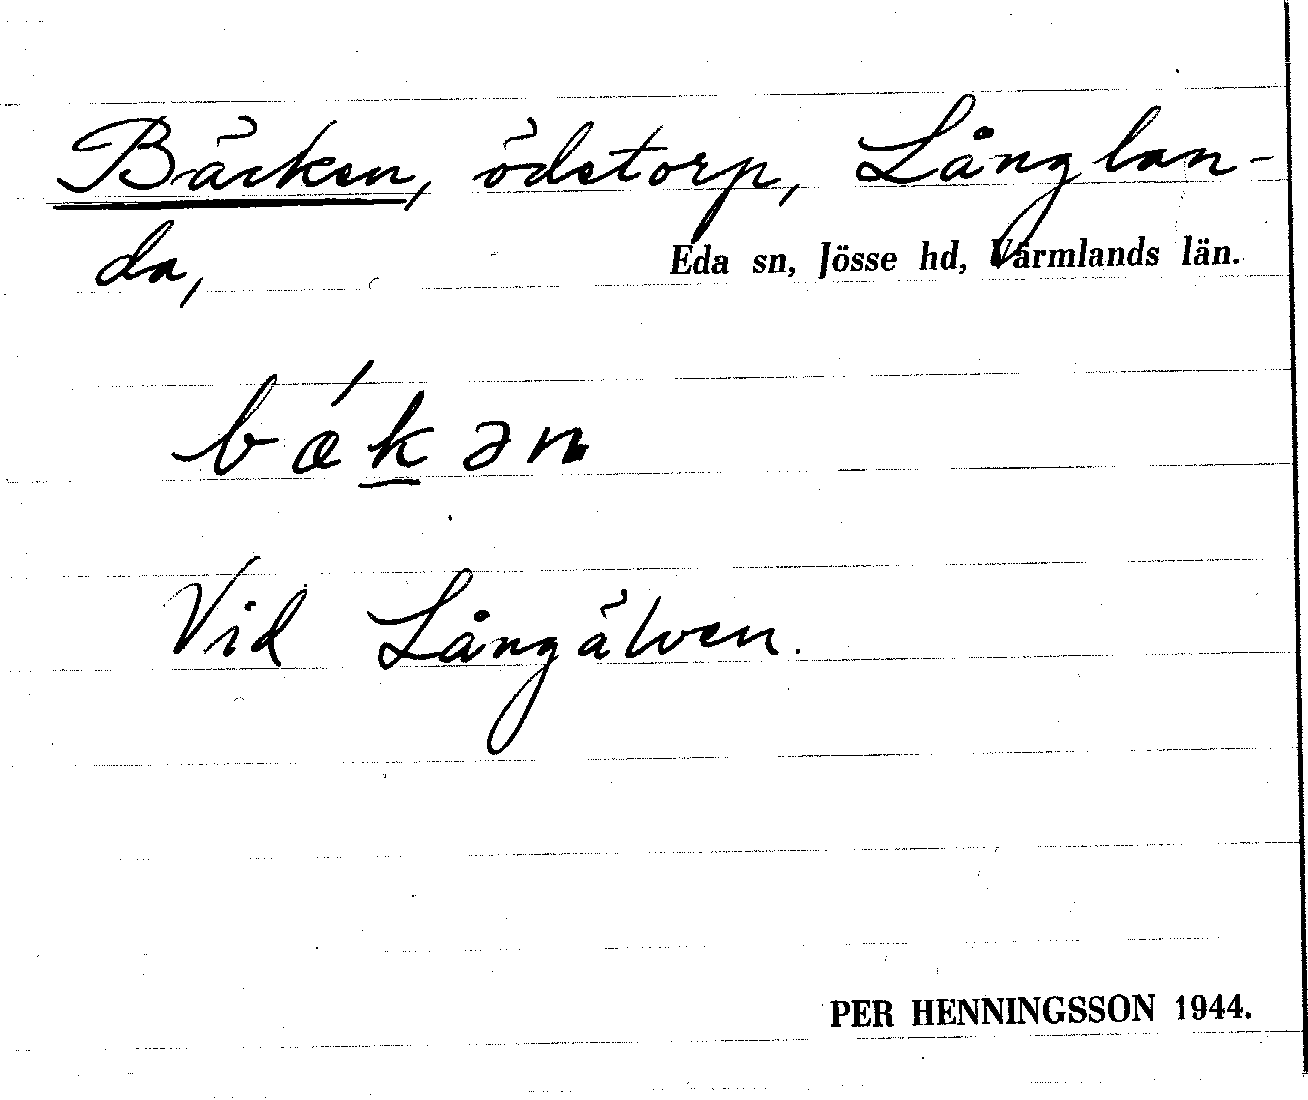 Bäcken, ödetorp, Långlan-
da,
Eda sn, Jösse hd, Värmlands län.
bǽk̲ən
Vid Långälven.
PER HENNINGSSON 1944.